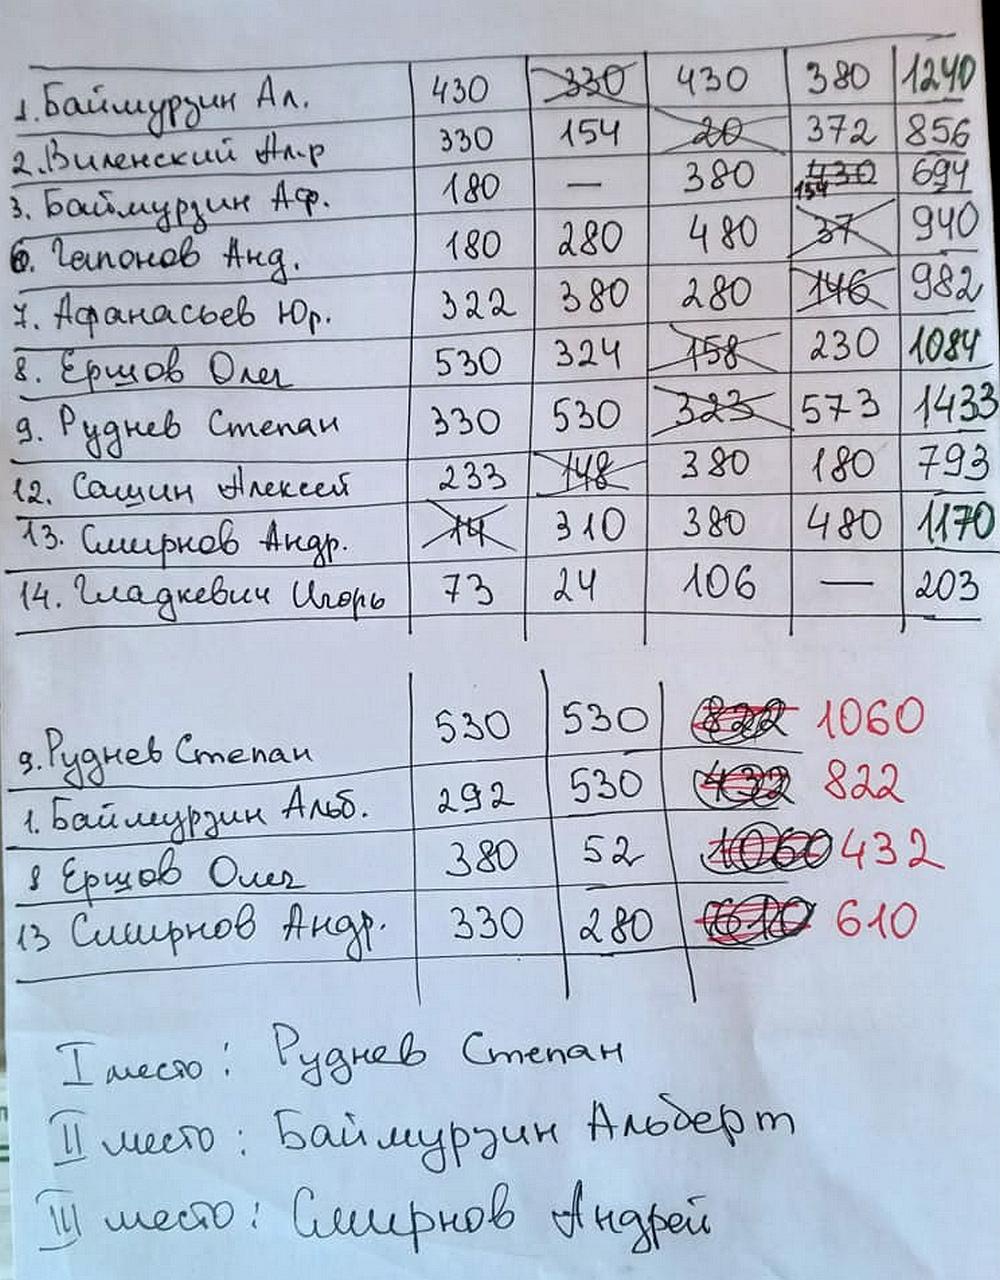 1. Баймурзин Ал. 430 330 430 380 1240
2. Виленский Ал-р 330 154 20 372 856
3. Баймурзин Аф. 180 — 380 430 154 694
6. Гапонов Анд. 180 280 480 37 940
7. Афанасьев Юр. 322 380 280 146 982
8. Ершов Олег 530 324 158 230 1084
9. Руднев Степан 330 530 323 573 1433
12. Сашин Алексей 233 148 380 180 793
13. Смирнов Андр. 14 310 380 480 1170
14. Гладкевич Игорь 73 24 106 — 203
9. Руднев Степан 530 530 822 1060
1. Баймурзин Альб. 292 530 432 822
8 Ершов Олег 380 52 1060 432
13 Смирнов Андр. 330 280 610 610
I место: Руднев Степан
II место: Баймурзин Альберт
III место: Смирнов Андрей